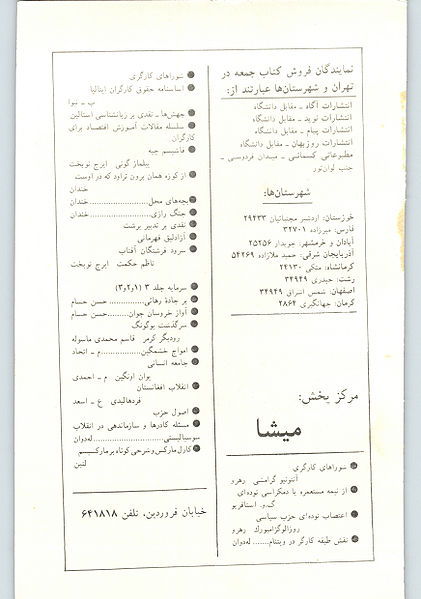 نمایندگان فروش کتاب جمعه در
تهران و شهرستان‌ها عبارتند از:
انتشارات آگاه - مقابل دانشگاه
انتشارات نوید - مقابل دانشگاه
انتشارات پیام - مقابل دانشگاه
انتشارات روزبهان - مقابل دانشگاه
مطبوعاتی کسمائی - میدان فردوسی -
جنب لوان‌تور
شهرستان‌ها:
خوزستان: اردشیر مجتبائیان ۲۹۴۳۳
فارس: میرزاده ۳۲۷۰۱
آبادان و خرمشهر: جویدار ۲۵۲۵۶
آذربایجان شرقی: حمید ملازاده ۵۴۲۶۹
کرمانشاه: متکی ۲۴۱۳۰
رشت: حیدری ۳۲۹۴۹
اصفهان: شمس اشراق ۳۴۹۴۹
کرمان: جهانگیری ۲۸۶۴
مرکز پخش:
میشا
● شوراهای کارگری
آنتونیو گرامشی رهرو
● از نیمه مستعمره تا دمکراسی توده‌ای
ک.و. استافریو
● اعتصاب توده‌ای حزب سیاسی
روزالوگزامبورگ رهرو
● نقش طبقه کارگر در ویتنام...... له‌دوان
● شوراهای کارگری
● اساسنامه حقوقی کارگران ایتالیا
ب - نیوا
● جهش‌ها - نقدی بر زبانشناسی استالین
● سلسله مقالات آموزش اقتصاد برای
کارگران
● فاشیسم چیه
ییلماز گونی ایرج نوبخت
● از کوزه همان برون تراود که در اوست
خندان
● بچه‌های محل...... خندان
● جنگ رازی...... خندان
● نقدی بر تدبیر برشت
● آزادشق قهرمانی
● سرود فرشتگان آفتاب
ناظم حکمت ایرج نوبخت
● سرمایه جلد ۳ (۱و۲و۳)
● بر جادهٔ رهائی...... حسن حسام
● آواز خروسان جوان...... حسن حسام
● سرگذشت بوگونگ
رودیگر کرمر قاسم محمدی ماسوله
● امواج خشمگین...... م - اتحاد
● جامعه انسانی
یوان اونگین م - احمدی
● انقلاب افغانستان
فردهالیدی ع - اسعد
● اصول حزب
● مسئله کادرها و سازماندهی در انقلاب
سوسیالیستی...... له‌دوان
● کارل مارکس و شرحی کوتاه بر مارکسیسم
لنین
خیابان فروردین، تلفن ۶۴۱۸۱۸